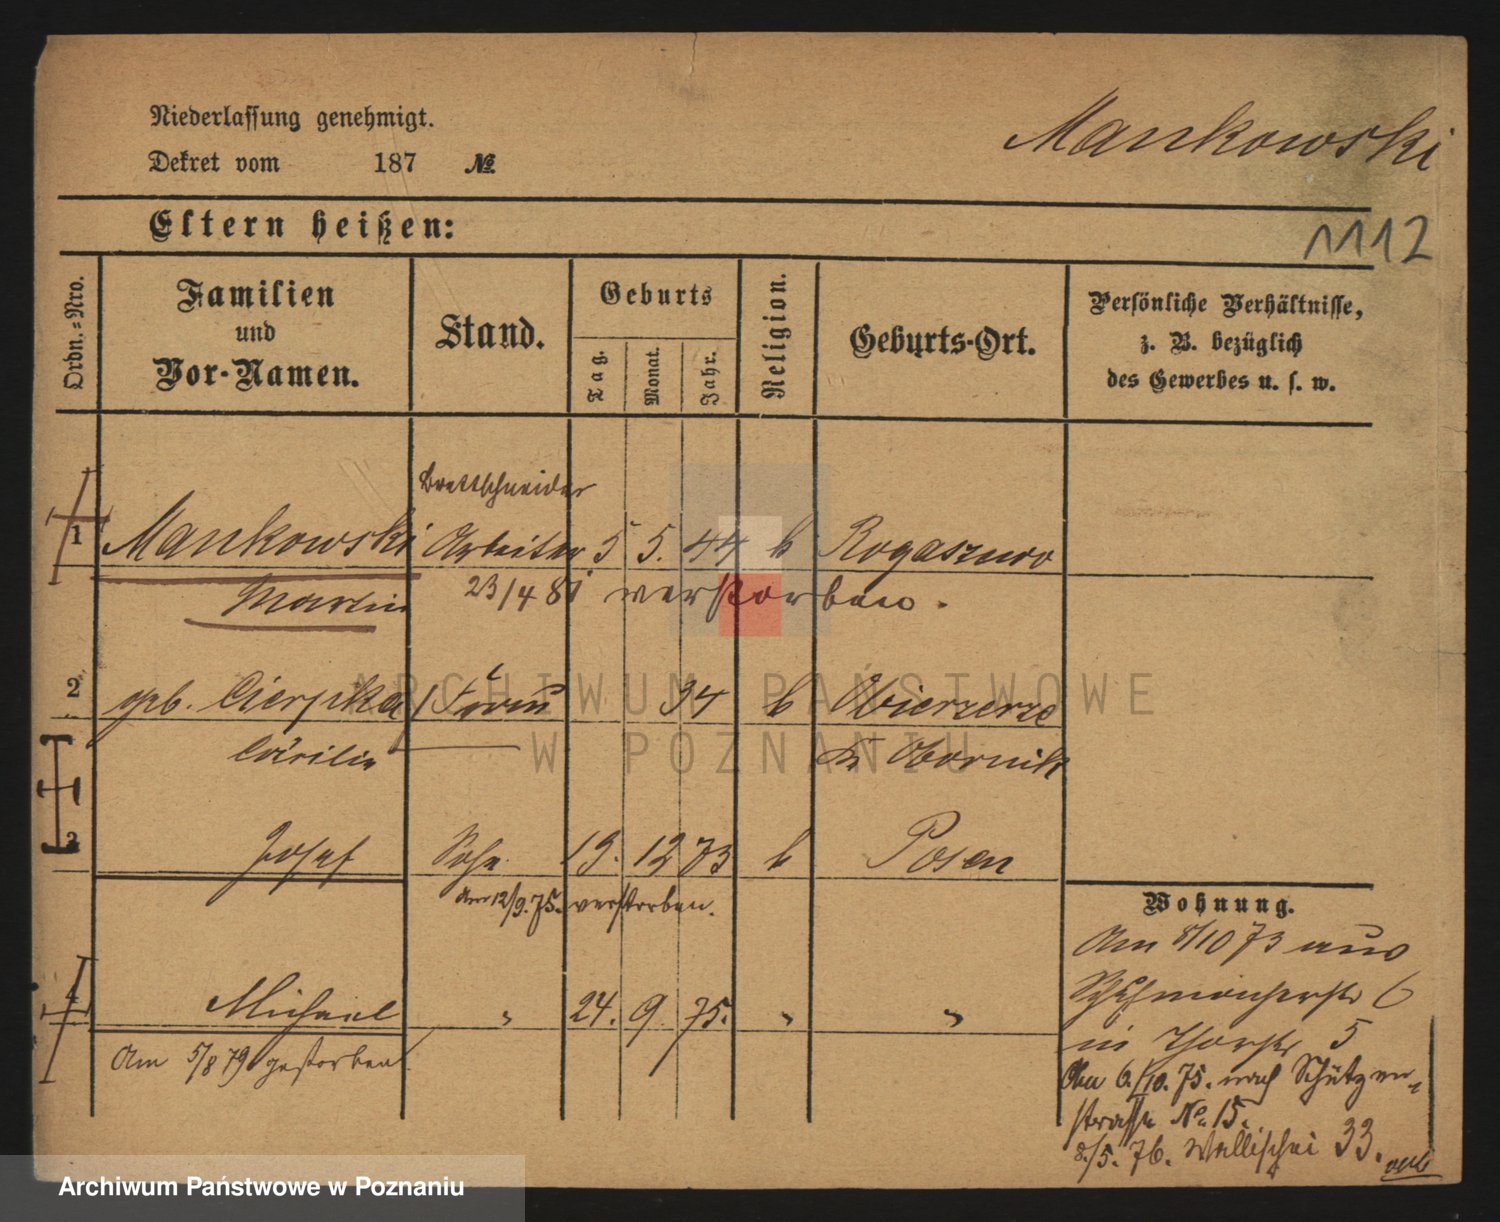 Niederlassung genehmigt.
Dekret vom 187 №
Mankowski
Eltern heißen:
1112
Ordn.-Nro.
Familien
und
Vor-Namen.
Stand.
Geburts
Tag.
Monat.
Jahr.
Religion.
Geburts-Ort.
Persönliche Verhältnisse,
z. B. bezüglich
des Gewerbes u. s. w.
Brettschneider
1 Mankowski Arbeiter 5 5. 44 k Rogaszewo
Martin 23/4 81 verstorben.
2 geb. Cierpka Frau 34 k Obierzerze
Cäcilie Kr Obornik
3 Josef Sohn 19. 12 73 k Posen
Am 12/9. 75. verstorben.
4 Michael " 24. 9 75. " "
Am 5/8 79 gestorben.
Wohnung.
Am 8/10 73 aus
6
in Thorstr 5
Am 6./10. 75. nach Schützen-
strasse No 15.
8./5. 76. Wallischei 33.
ARCHIWUM PAŃSTWOWE
W POZNANIU
Archiwum Państwowe w Poznaniu